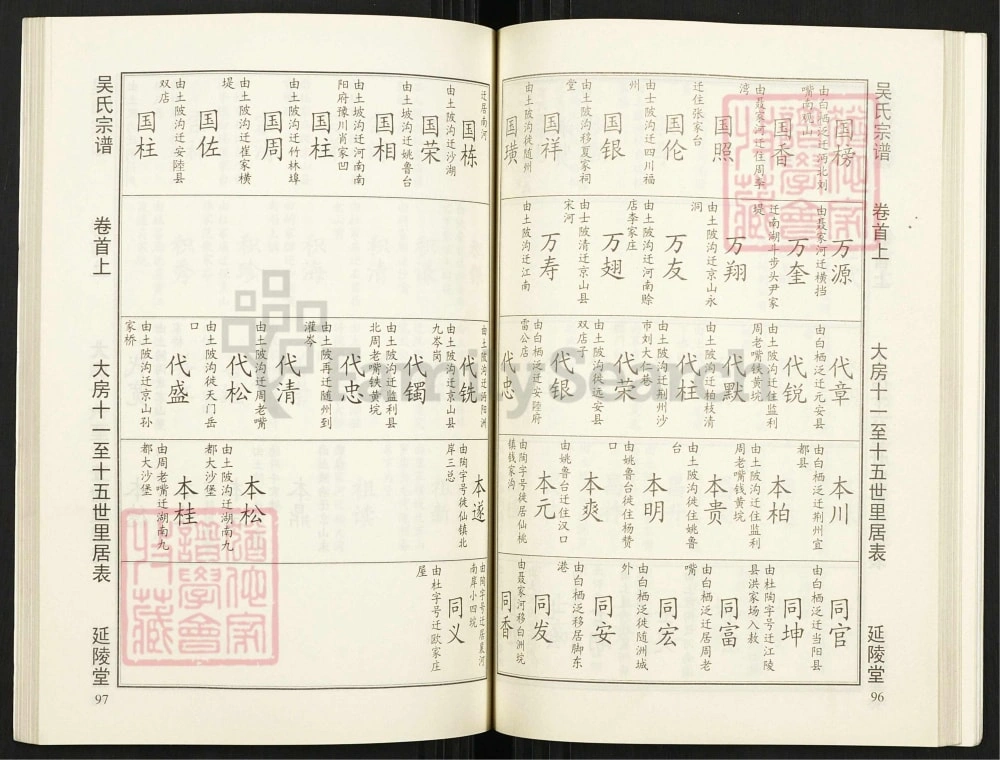 吴氏宗谱
卷首上
大房十一至十五世里居表
延陵堂
96
国榜
由白栖泛迁沔北刘
嘴南观山
国香
由聂家河迁住周季
湾
国照
国伦
迁住张家台
国银
由士陂沟迁四川福
州
国祥
由土陂沟移夏家祠
堂
国璜
由土陂沟徒随州
万源
由聂家河迁横挡
万奎
迁南湖斗步头尹家
堤
万翔
由土陂沟迁京山永
洞
万友
由土陂沟迁河南赊
店李家庄
万翅
由士陂清迁京山县
宋河
万寿
由土陂沟迁江南
代章
由白栖泛迁元安县
代锐
由土陂沟迁住监利
周老嘴铁黄垸
代默
由土陂沟迁柏枝清
代柱
由土陂沟迁荆州沙
市刘大仁巷
代荣
由土陂沟徙远安县
双店子
代银
由白栖泛迁安陸府
雷公店
代忠
本川
由白栖泛迁荆州宜
都县
本柏
由土陂沟迁住监利
周老嘴钱黄垸
本贵
由土陂沟迁住姚鲁
台
本明
由姚鲁台徒住杨赞
口
本爽
由姚鲁台迁住汉口
本元
由陶字号徒居仙桃
镇钱家沟
同官
由白栖泛迁当阳县
同坤
由杜陶字号迁江陵
县洪家场入赦
同富
由白栖泛迁居周老
嘴
同宏
由白栖泛徒随洲城
外
同安
由白栖泛移居脚东
港
同发
由聂家河移白洲垸
同香
吴氏宗谱
卷首上
大房十一至十五世里居表
延陵堂
97
迁居南河
国栋
由土陂沟迁沙湖
国荣
由土坡沟迁姚鲁台
国相
由土坡沟迁河南南
阳府豫川肖家凹
国柱
由土陂沟迁竹林埠
国周
由土陂沟迁崔家横
堤
国佐
由土陂沟迁安陸县
双店
国柱
由土陂沟迁沔阳洲
代铣
由土陂沟迁京山县
九岑岗
代镯
由土陂沟迁监利县
北周老嘴铁黄垸
代忠
由土陂再迁随州到
灌岑
代清
由土陂沟迁周老嘴
代松
由土陂沟徙天门岳
口
代盛
由土陂沟迁京山孙
家桥
本遂
由陶字号徒仙镇北
岸三总
本松
由土陂沟迁湖南九
都大沙堡
本桂
由周老嘴迁湖南九
都大沙堡
由陶字号迁居夏河
南岸小四垸
同义
由杜字号迁欧家庄
屋
FamilySearch